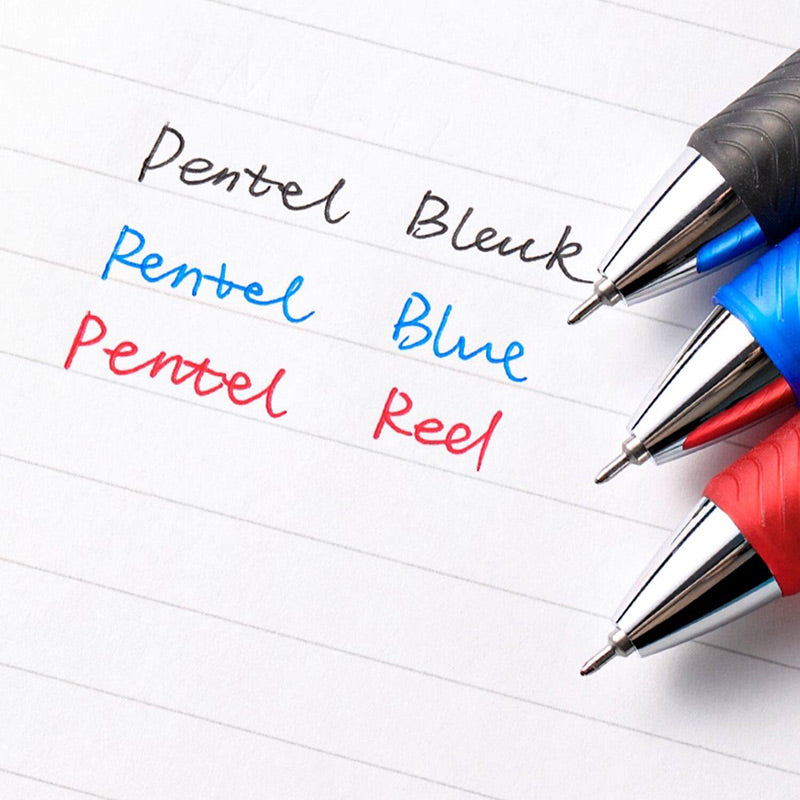 Pentel Bleuk
Pentel Blue
Pentel Reel